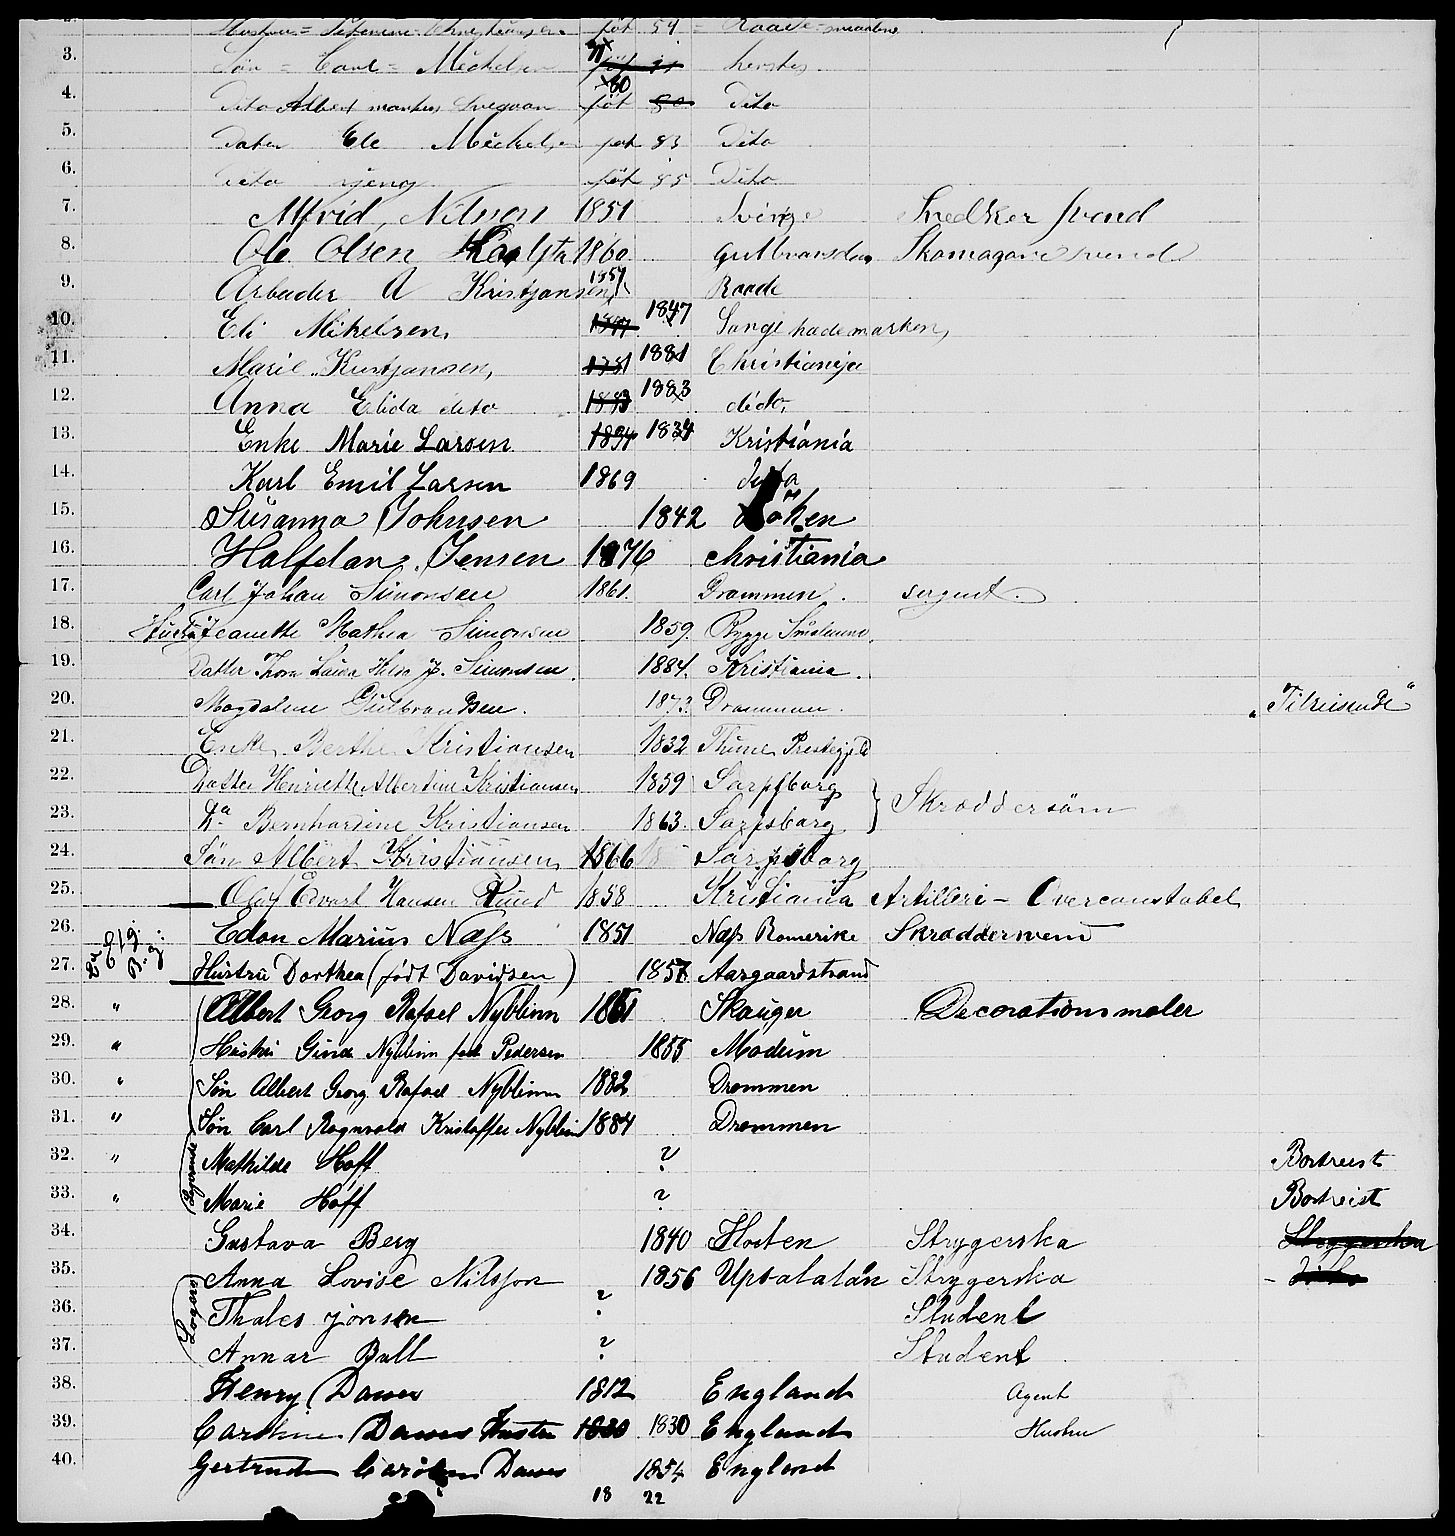 Hustru = født 54 = Raade
3. Søn = Carl = Mickelsen 71 født herstes
4. Dito Albert markus 80 født Dito
5. Dater Ele Mickelsen født 83 Dito
6. dito født 85 Dito
7. Alfrid, Nilson 1851 Sverge Snedker svend
8. Ole Olsen 1860 Gulbransdalen Skomagare svend
9. Arbeder A Kristjansen 1857 Raade
10. Eli Mikelsen, 1847 hademarken,
11. Marie Kristjansen, 1881 Christianija
12. Anna Elida dito 1883 dido,
13. Enke Marie Larsen 1834 Kristiania
14. Karl Emil Larsen 1869 dito
15. Susanna Johnsen 1842 Röken
16. Halfdan Jensen 1876 Christiania
17. Carl Johan Simonsen 1861. Drammen. sergent.
18. Hustru Jeanette Mathea Simonsen 1859. Rygge Smålenene,
19. Datter Thora Laura J. Simonsen. 1884. Kristiania.
20. Magdalene Gulbrandsen. 1873. Drammen. "Tilreisende"
21. Enke Berthe Kristiansen 1832 Thune Prestegjeld
22. Datter Henriette Albertine Kristiansen 1859 Sarpsborg
23. Do Bernhardine Kristiansen 1863. Sarpsborg } Skræddersöm
24. Sön Albert Kristiansen 1866 Sarpsborg
25. Olaf Edvart Hansen Ruud 1858 Kristiania Artilleri - Overconstabel
26. 2den Etg. B. g: Edon Marius Næss 1851 Næss Romerike Skræddersvend
27. Hustru Dorthea (født Davidsen) 1857 Aargaardstrand
28. " Albert Georg Rafael Nyblinn 1861 Skauger Decorationsmaler
29. " Hustru Gina Nyblinn født Pedersen 1855 Modum
30. " Søn Albert Georg Rafael Nyblinn 1882 Drammen
31. " Søn Carl Ragnvald Kristoffer Nyblinn 1884 Drammen
32. " Logerende Mathilde Hoff ? Bortreist
33. " Marie Hoff ? Bortreist
34. Gustava Berg 1840 Horten Strygerska Strygerska
35. Anna Lovise Nilsson 1856 Upsalalän Strygerska - dito
36. Logerer Thales jonsen ? Student
37. Annar Bull ? Student
38. Henry Dawes 1812 England Agent
39. Caroline Dawes Hustru 1830 1830 England Hustru
40. Gertrude Caroline Dawes 1854 England
18 22